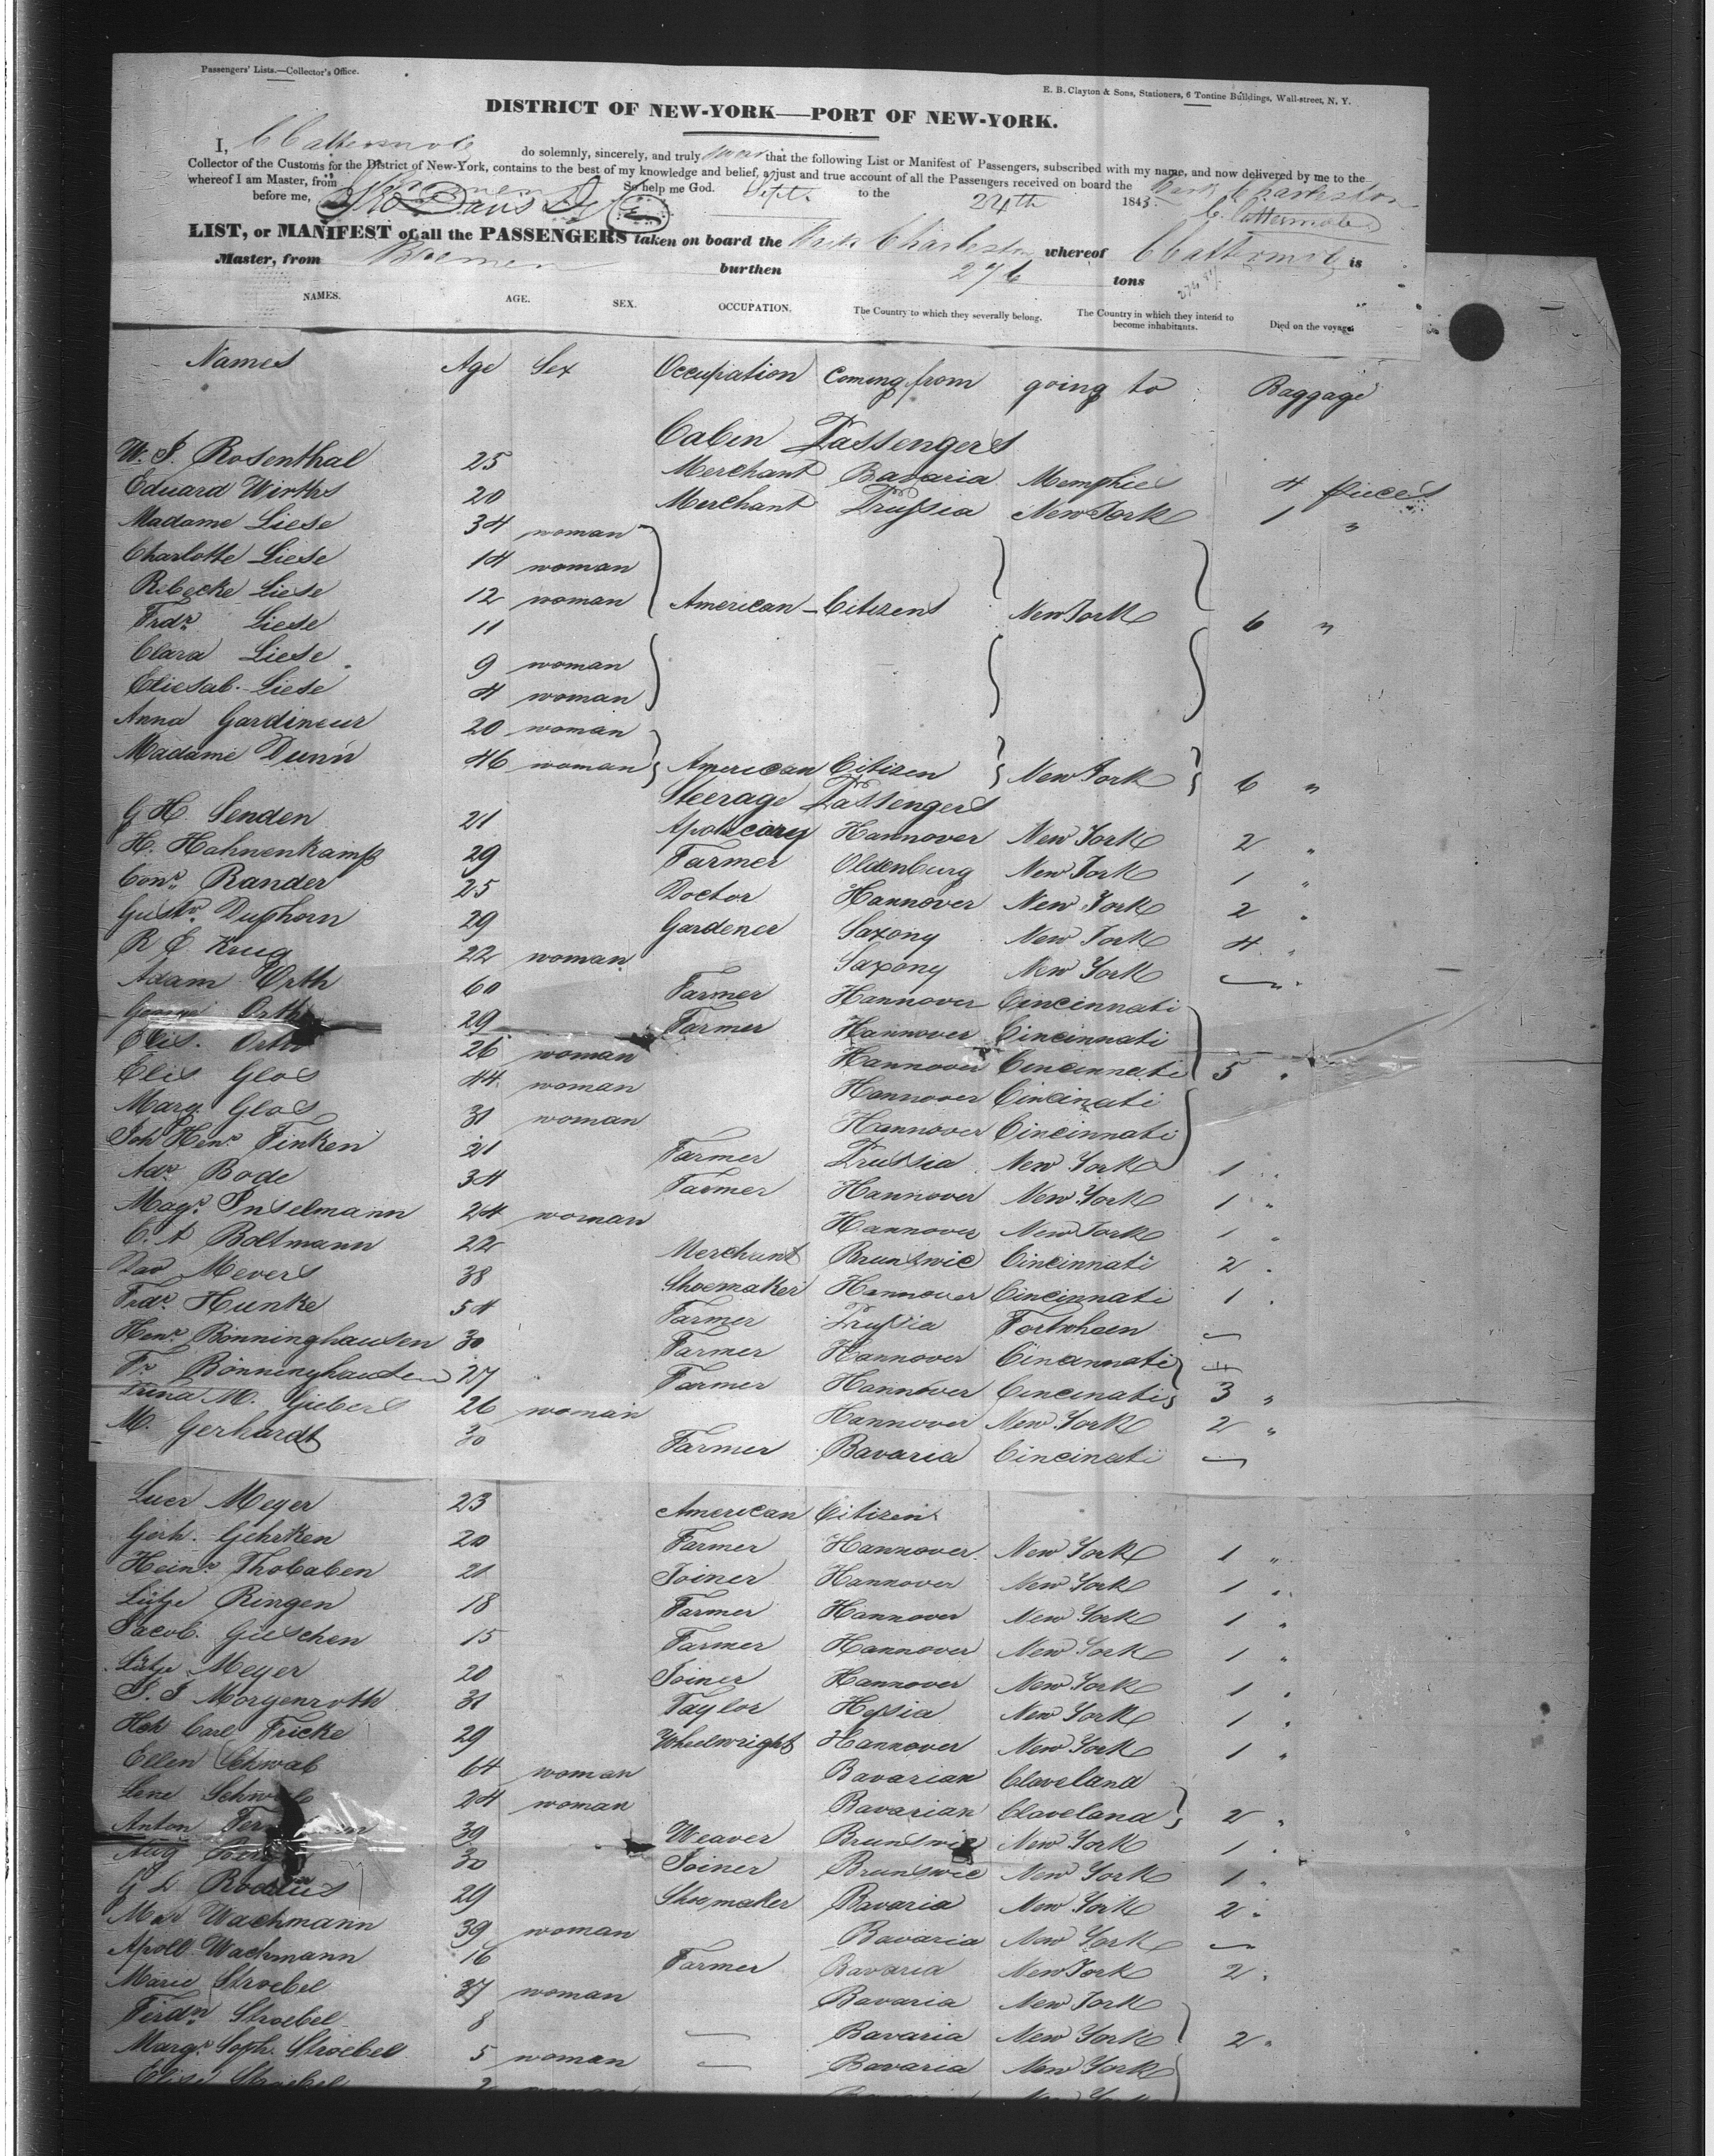 Passengers' Lists.—Collector's Office.
E. B. Clayton & Sons, Stationers, 6 Tontine Buildings, Wall-street, N. Y.
DISTRICT OF NEW-YORK—PORT OF NEW-YORK.
I, do solemnly, sincerely, and truly swear that the following List or Manifest of Passengers, subscribed with my name, and now delivered by me to the
Collector of the Customs for the District of New-York, contains to the best of my knowledge and belief, a just and true account of all the Passengers received on board the Bark Charleston
whereof I am Master, from Bremen So help me God. Sept. to the 24th 1843.
before me,
LIST, or MANIFEST of all the PASSENGERS taken on board the Charleston whereof is
Master, from Bremen burthen 276 tons
NAMES. AGE. SEX. OCCUPATION. The Country to which they severally belong. The Country in which they intend to become inhabitants. Died on the voyage
Names Age Sex Occupation Coming from going to Baggage
Cabin Passengers
W. S. Rosenthal 25 Merchant Bavaria Memphis 4 pieces
Eduard Wirths 20 Merchant Prussia New York 1 "
Madame Liese 34 woman
Charlotte Liese 14 woman
Rebecke Liese 12 woman American Citizens New York 6 "
Fredr. Liese 11
Clara Liese 9 woman
Eliesab. Liese 4 woman
Anna Gardineur 20 woman
Madame Dunn 46 woman American Citizen New York 6 "
Steerage Passengers
G H. Senden 21 Apothecary Hannover New York 2 "
H. Hahnenkamp 29 Farmer Oldenburg New York 1 "
Conr. Rander 25 Doctor Hannover New York 2 "
Gustv. Duphorn 29 Gardener Saxony New York 4 "
R E. Krug 22 woman Saxony New York — "
Adam Orth 60 Farmer Hannover Cincinnati
George Orth 29 Farmer Hannover Cincinnati
Elis. Orth 26 woman Hannover Cincinnati 5 "
Elis Glos 44 woman Hannover Cincinati
Marg. Glos 31 woman Hannover Cincinnati
Joh Henr Finken 21 Farmer Prussia New York 1 "
Adr. Bode 34 Farmer Hannover New York 1 "
Magr. Inselmann 24 woman Hannover New York 1 "
C. A Boltmann 22 Merchant Brunswic Cincinnati 2 "
Dav Mevers 38 Shoemaker Hannover Cincinnati 1 "
Fredr. Hunke 54 Farmer Prussia —
Henr. Bonninghausen 30 Farmer Hannover Cincinnati
Fr. Bonninghausen 27 Farmer Hannover Cincinati 3 "
Trina M. Giebers 26 woman Hannover New York 2 "
M. Gerhardt 30 Farmer Bavaria Cincinati —
Luer Meyer 23 American Citizen
Gerh. Gehrken 20 Farmer Hannover New York 1 "
Heinr. Thobaben 21 Joiner Hannover New York 1 "
Lütje Ringen 18 Farmer Hannover New York 1 "
Jacob. Gieschen 15 Farmer Hannover New York 1 "
Lütje Meyer 20 Joiner Hannover New York 1 "
Morgenroth 31 Taylor Hessia New York 1 "
Carl Fricke 29 Wheelwright Hannover New York 1 "
Ellen Schwab 64 woman Bavarian Claveland
Lene Schwab 24 woman Bavarian Claveland 2 "
Anton 39 Weaver Brunswic New York 1 "
Aug 30 Joiner Brunswic New York 1 "
G L 29 Shoemaker Bavaria New York 2 "
Mar Wachmann 39 woman Bavaria New York —
Apoll Wachmann 16 Farmer Bavaria New York 2 "
Marie Stroebel 37 woman Bavaria New York
Ferdn. Stroebel 8 — Bavaria New York 2 "
Margr. Soph. Stroebel 5 woman — Bavaria New York
Stroebel